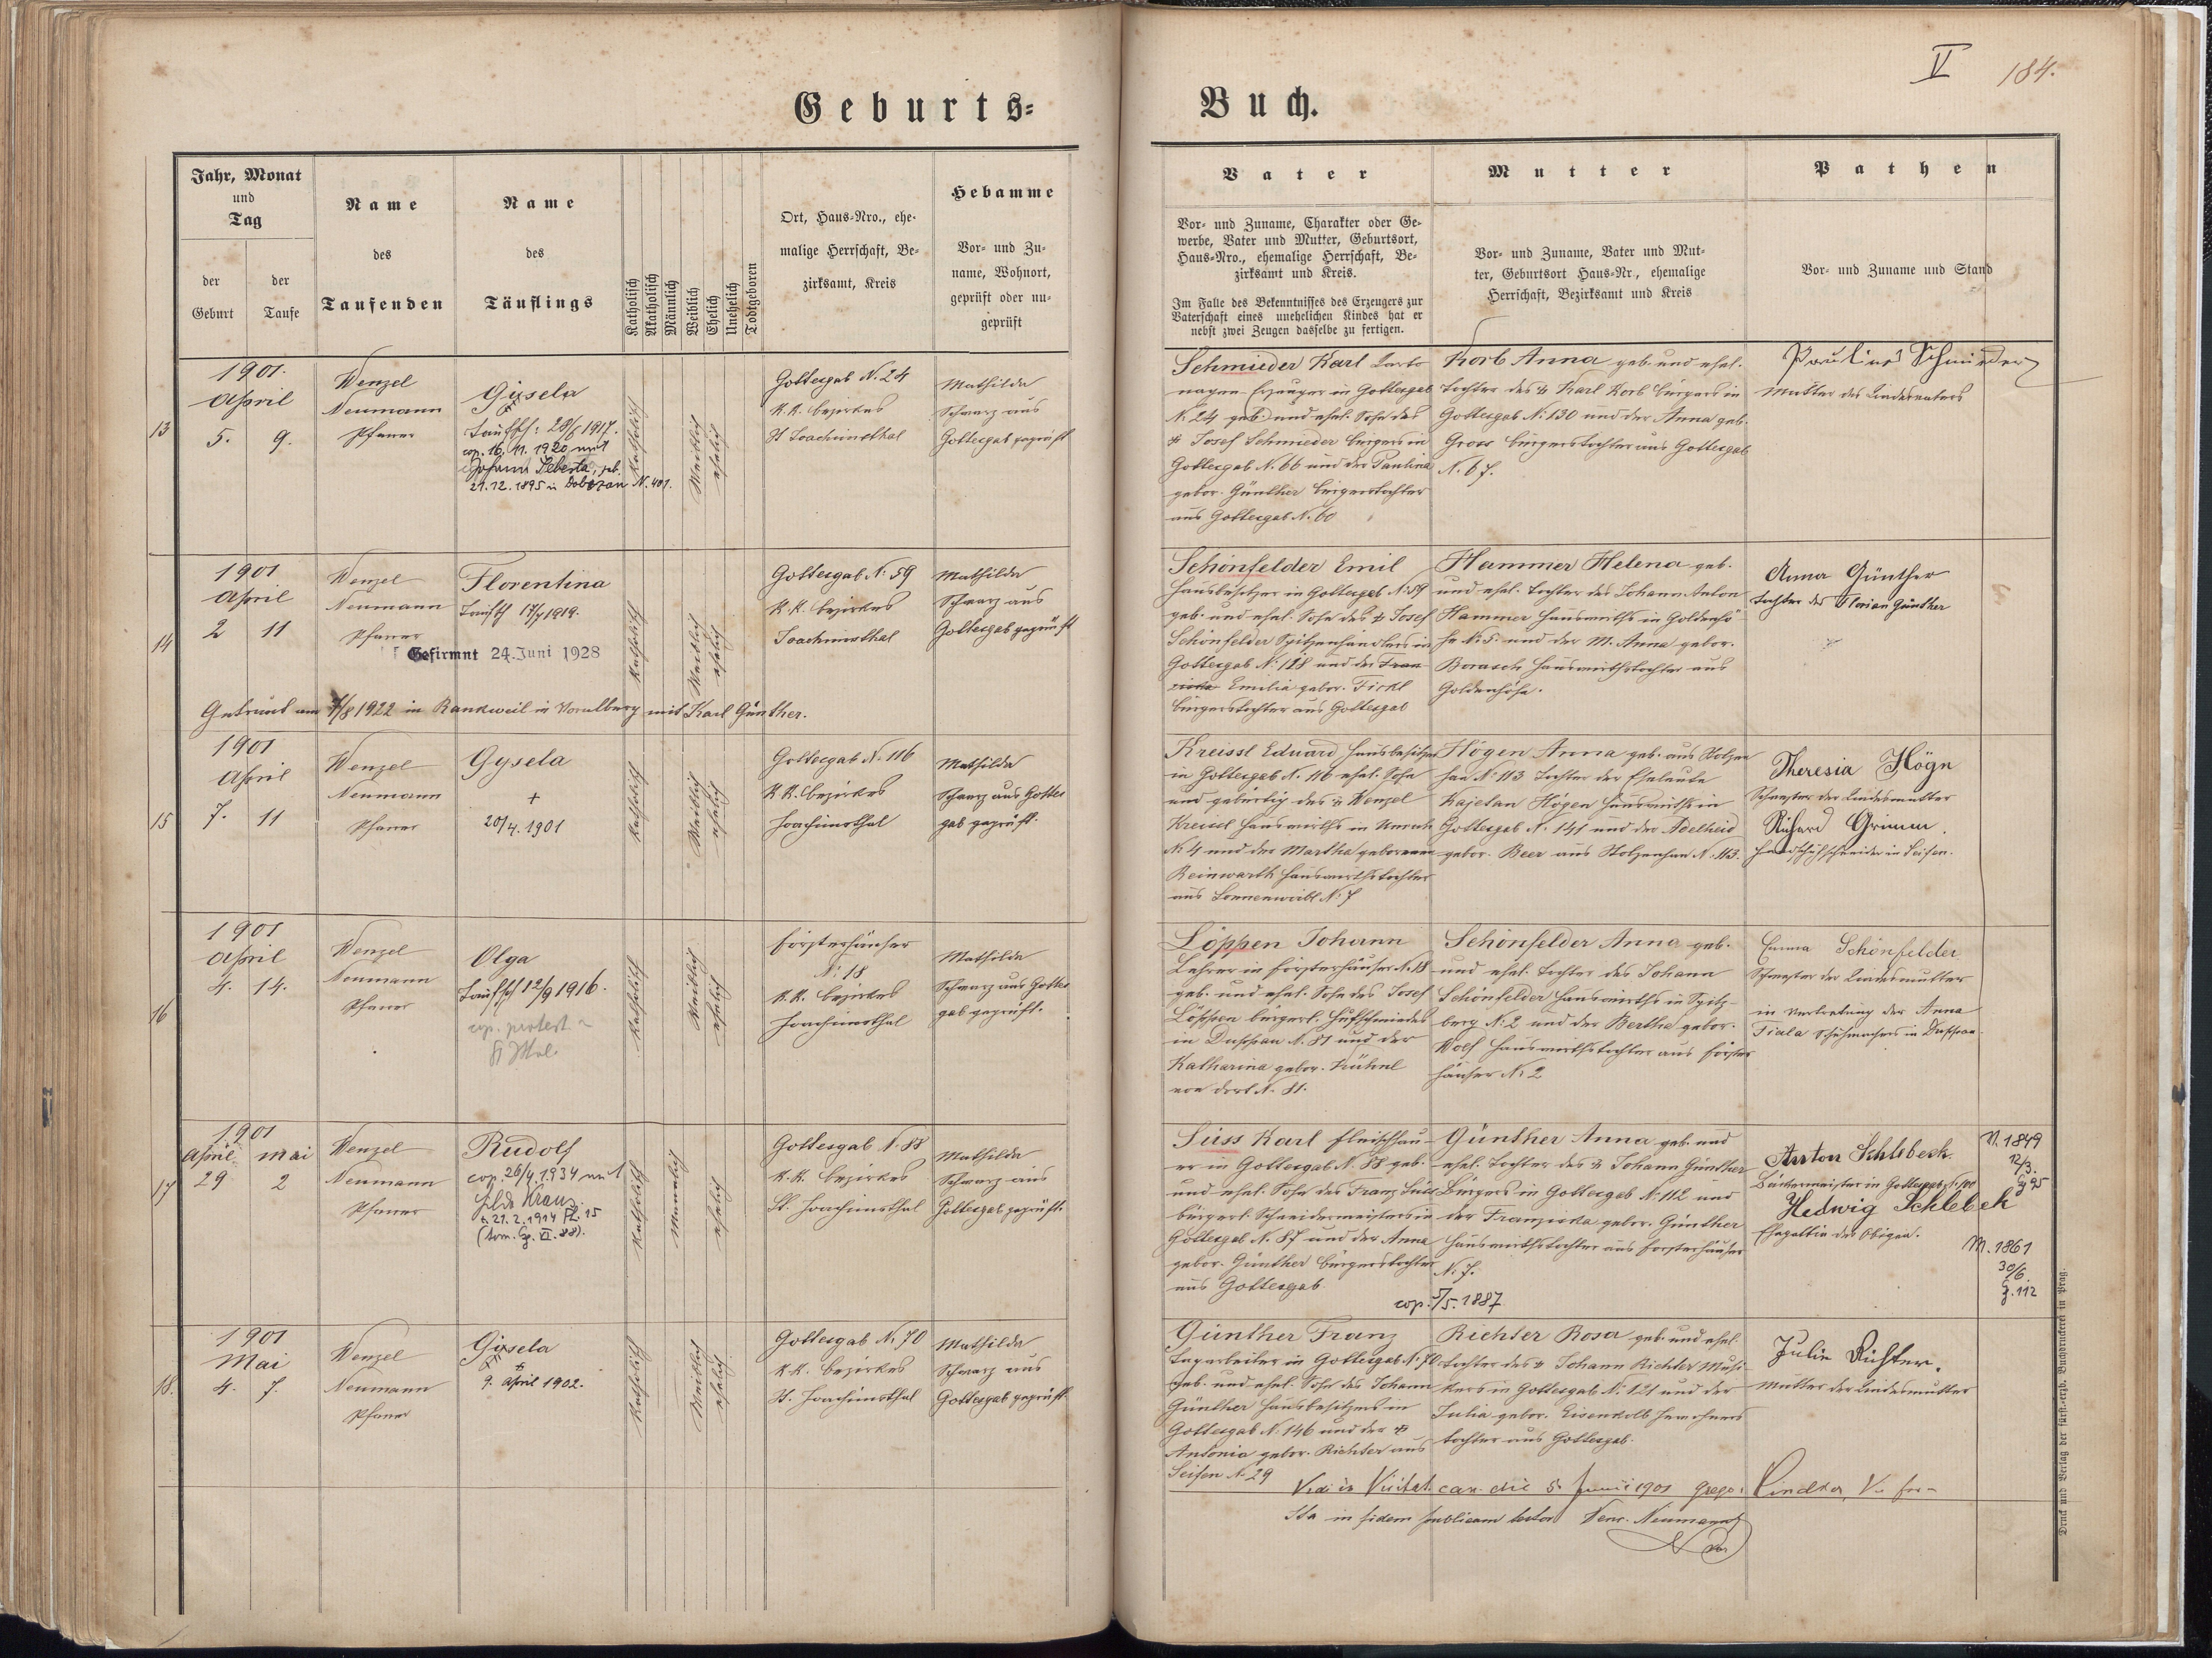 V 184.
Geburts=
Buch.
Jahr, Monat
und
Tag
der
Geburt
der
Taufe
Name
des
Taufenden
Name
des
Täuflings
Katholisch
Akatholisch
Männlich
Weiblich
Ehelich
Unehelich
Todtgeboren
Ort, Haus=Nro., ehe=
malige Herrschaft, Be=
zirksamt, Kreis
Hebamme
Vor= und Zu=
name, Wohnort,
geprüft oder un=
geprüft
Vater
Vor= und Zuname, Charakter oder Ge=
werbe, Vater und Mutter, Geburtsort,
Haus=Nro., ehemalige Herrschaft, Be=
zirksamt und Kreis.
Im Falle des Bekenntnisses des Erzeugers zur
Vaterschaft eines unehelichen Kindes hat er
nebst zwei Zeugen dasselbe zu fertigen.
Mutter
Vor= und Zuname, Vater und Mut=
ter, Geburtsort Haus=Nr., ehemalige
Herrschaft, Bezirksamt und Kreis
Pathen
Vor= und Zuname und Stand
13
1901.
April
5. 9.
Wenzel
Neumann
Pfarrer
Gisela
Taufsch: 28/ 1917.
cop. 16. 11. 1920 mit
Johann Seberta, geb.
21.12.1895 in N. 401.
katholisch
Weiblich
ehelich
Gottesgab N. 24
K.K. bezirkes
St Joachimsthal
Mathilda
Schwarz aus
Gottesgab geprüft
Schmieder Karl Carto
nagen-Erzeuger in Gottesgab
N. 24 geb. und ehel. Sohn des
Josef Schmieder bürgers in
Gottesgab N. 66 und der Paulina
gebor. Günther bürgerstochter
aus Gottesgab N. 60
Korb Anna geb. und ehel.
tochter des Karl Korb bürgers in
Gottesgab N: 130 und der Anna geb.
Gross bürgerstochter aus Gottesgab
N. 67.
Pauline Schmieder
Mutter des Kindesvaters
14
1901
April
2 11
Wenzel
Neumann
Pfarrer
Florentina
Taufsch 17/ 1919.
Gefirmt 24. Juni 1928
Getraut am /8 1922 in Rankweil in Voralberg mit Karl Günther.
katholisch
Weiblich
ehelich
Gottesgab N: 59
K.K. bezirkes
Joachimsthal
Mathilda
Schwarz aus
Gottesgab geprüft
Schönfelder Emil
Hausbesitzer in Gottesgab N: 59
geb. und ehel. Sohn des Josef
Schönfelder Spitzenhändlers in
Gottesgab N: 128 und der Fran
ziska Emilia gebor. Fickl
bürgerstochter aus Gottesgab
Hammer Helena geb.
und ehel. tochter des Johann Anton
Hammer Hauswirths in Goldenhö
he N: 5. und der M. Anna gebor.
Borasch Hauswirthstochter aus
Goldenhöhe.
Anna Günther
tochter des Florian Günther
15
1901
April
7. 11
Wenzel
Neumann
Pfarrer
Gysela
+
20/4. 1901
katholisch
Weiblich
ehelich
Gottesgab N. 116
K.K. bezirkes
Joachimsthal
Mathilda
Schwarz aus Gottes
gab geprüft.
Kreissl Eduard Hausbesitzer
in Gottesgab N. 116 ehel. Sohn
und gebürtig des Wenzel
Kreissl Hauswirths in
N: 4 und der Martha geborenen
Reinwarth Hauswirthstochter
aus Sonnenwirbl N: 7
Högen Anna geb. aus Stolzen
han N: 113 tochter der Eheleute
Kajetan Högen Hauswirths in
Gottesgab N: 141 und der Adelheid
gebor. Beer aus Stolzenhan N: 113.
Theresia Högn
Schwester der Kindesmutter
Richard Grimm.
Handschuhschneider in Seifen.
16
1901
April
4. 14.
Wenzel
Neumann
Pfarrer
Olga
Taufsch 12/9 1916.
cop. protest
katholisch
Weiblich
ehelich
Försterhäuser
N: 18
K.K. bezirkes
Joachimsthal
Mathilda
Schwarz aus Gottes
gab geprüft.
Löppen Johann
Lehrer in Försterhäuser N. 18
geb. und ehel. Sohn des Josef
Löppen bürgerl. Hufschmiedes
in Duppau N. 81 und der
Katharina gebor. Kühnl
von dort N. 81.
Schönfelder Anna geb.
und ehel. tochter des Johann
Schönfelder Hauswirths in Spitz-
berg N: 2 und der Bertha gebor.
Wolf Hauswirthstochter aus Förster
häuser N: 2
Emma Schönfelder
Schwester der Kindesmutter
in Vertretung der Anna
Fiala Schuhmachers in Duppau.
17
1901
April Mai
29 2
Wenzel
Neumann
Pfarrer
Rudolf
cop. 26/4. 1934 mit
Hilda Kraus
21. 2. 1914 Pl. 15
(tom. G. VI. 88).
katholisch
Männlich
ehelich
Gottesgab N. 88
K.K. bezirkes
St. Joachimsthal
Mathilda
Schwarz aus
Gottesgab geprüft.
Süss Karl Fleischhau-
er in Gottesgab N. 88 geb.
und ehel. Sohn des Franz Süss
bürgerl. Schneidermeisters in
Gottesgab N. 87 und der Anna
gebor. Günther bürgerstochter
aus Gottesgab.
Günther Anna geb. und
ehel. tochter des Johann Günther
Bürgers in Gottesgab N: 112 und
der Franziska gebor. Günther
Hauswirthstochter aus Försterhäuser
N. 7.
cop. 5/5. 1887
Anton Schlebeck.
Bäckermeister in Gottesgab N. 100
Hedwig Schlebeck
Ehegattin des Obigen.
V. 1849
12/3.
G 95
M. 1861
30/6.
G. 112
18.
1901
Mai
4. 7.
Wenzel
Neumann
Pfarrer
Gisela
9. April 1902.
katholisch
Weiblich
ehelich
Gottesgab N. 70
K.K. bezirkes
St. Joachimsthal
Mathilda
Schwarz aus
Gottesgab geprüft
Günther Franz
Tagarbeiter in Gottesgab N. 70
geb. und ehel. Sohn des Johann
Günther Hausbesitzers in
Gottesgab N: 146 und der
Antonia gebor. Richter aus
Seifen N. 29
Richter Rosa geb. und ehel.
tochter des Johann Richter Musi-
kers in Gottesgab N: 121 und der
Julia gebor. Eisenkolb Inwohners
tochter aus Gottesgab.
Julie Richter.
Mutter der Kindesmutter
Vidi in Visitat. can. die 5. Junii 1901
Ita in fidem publicam testor Wenz. Neumann
Druck und Verlag der fürst.-erzb. Buchdruckerei in Prag.